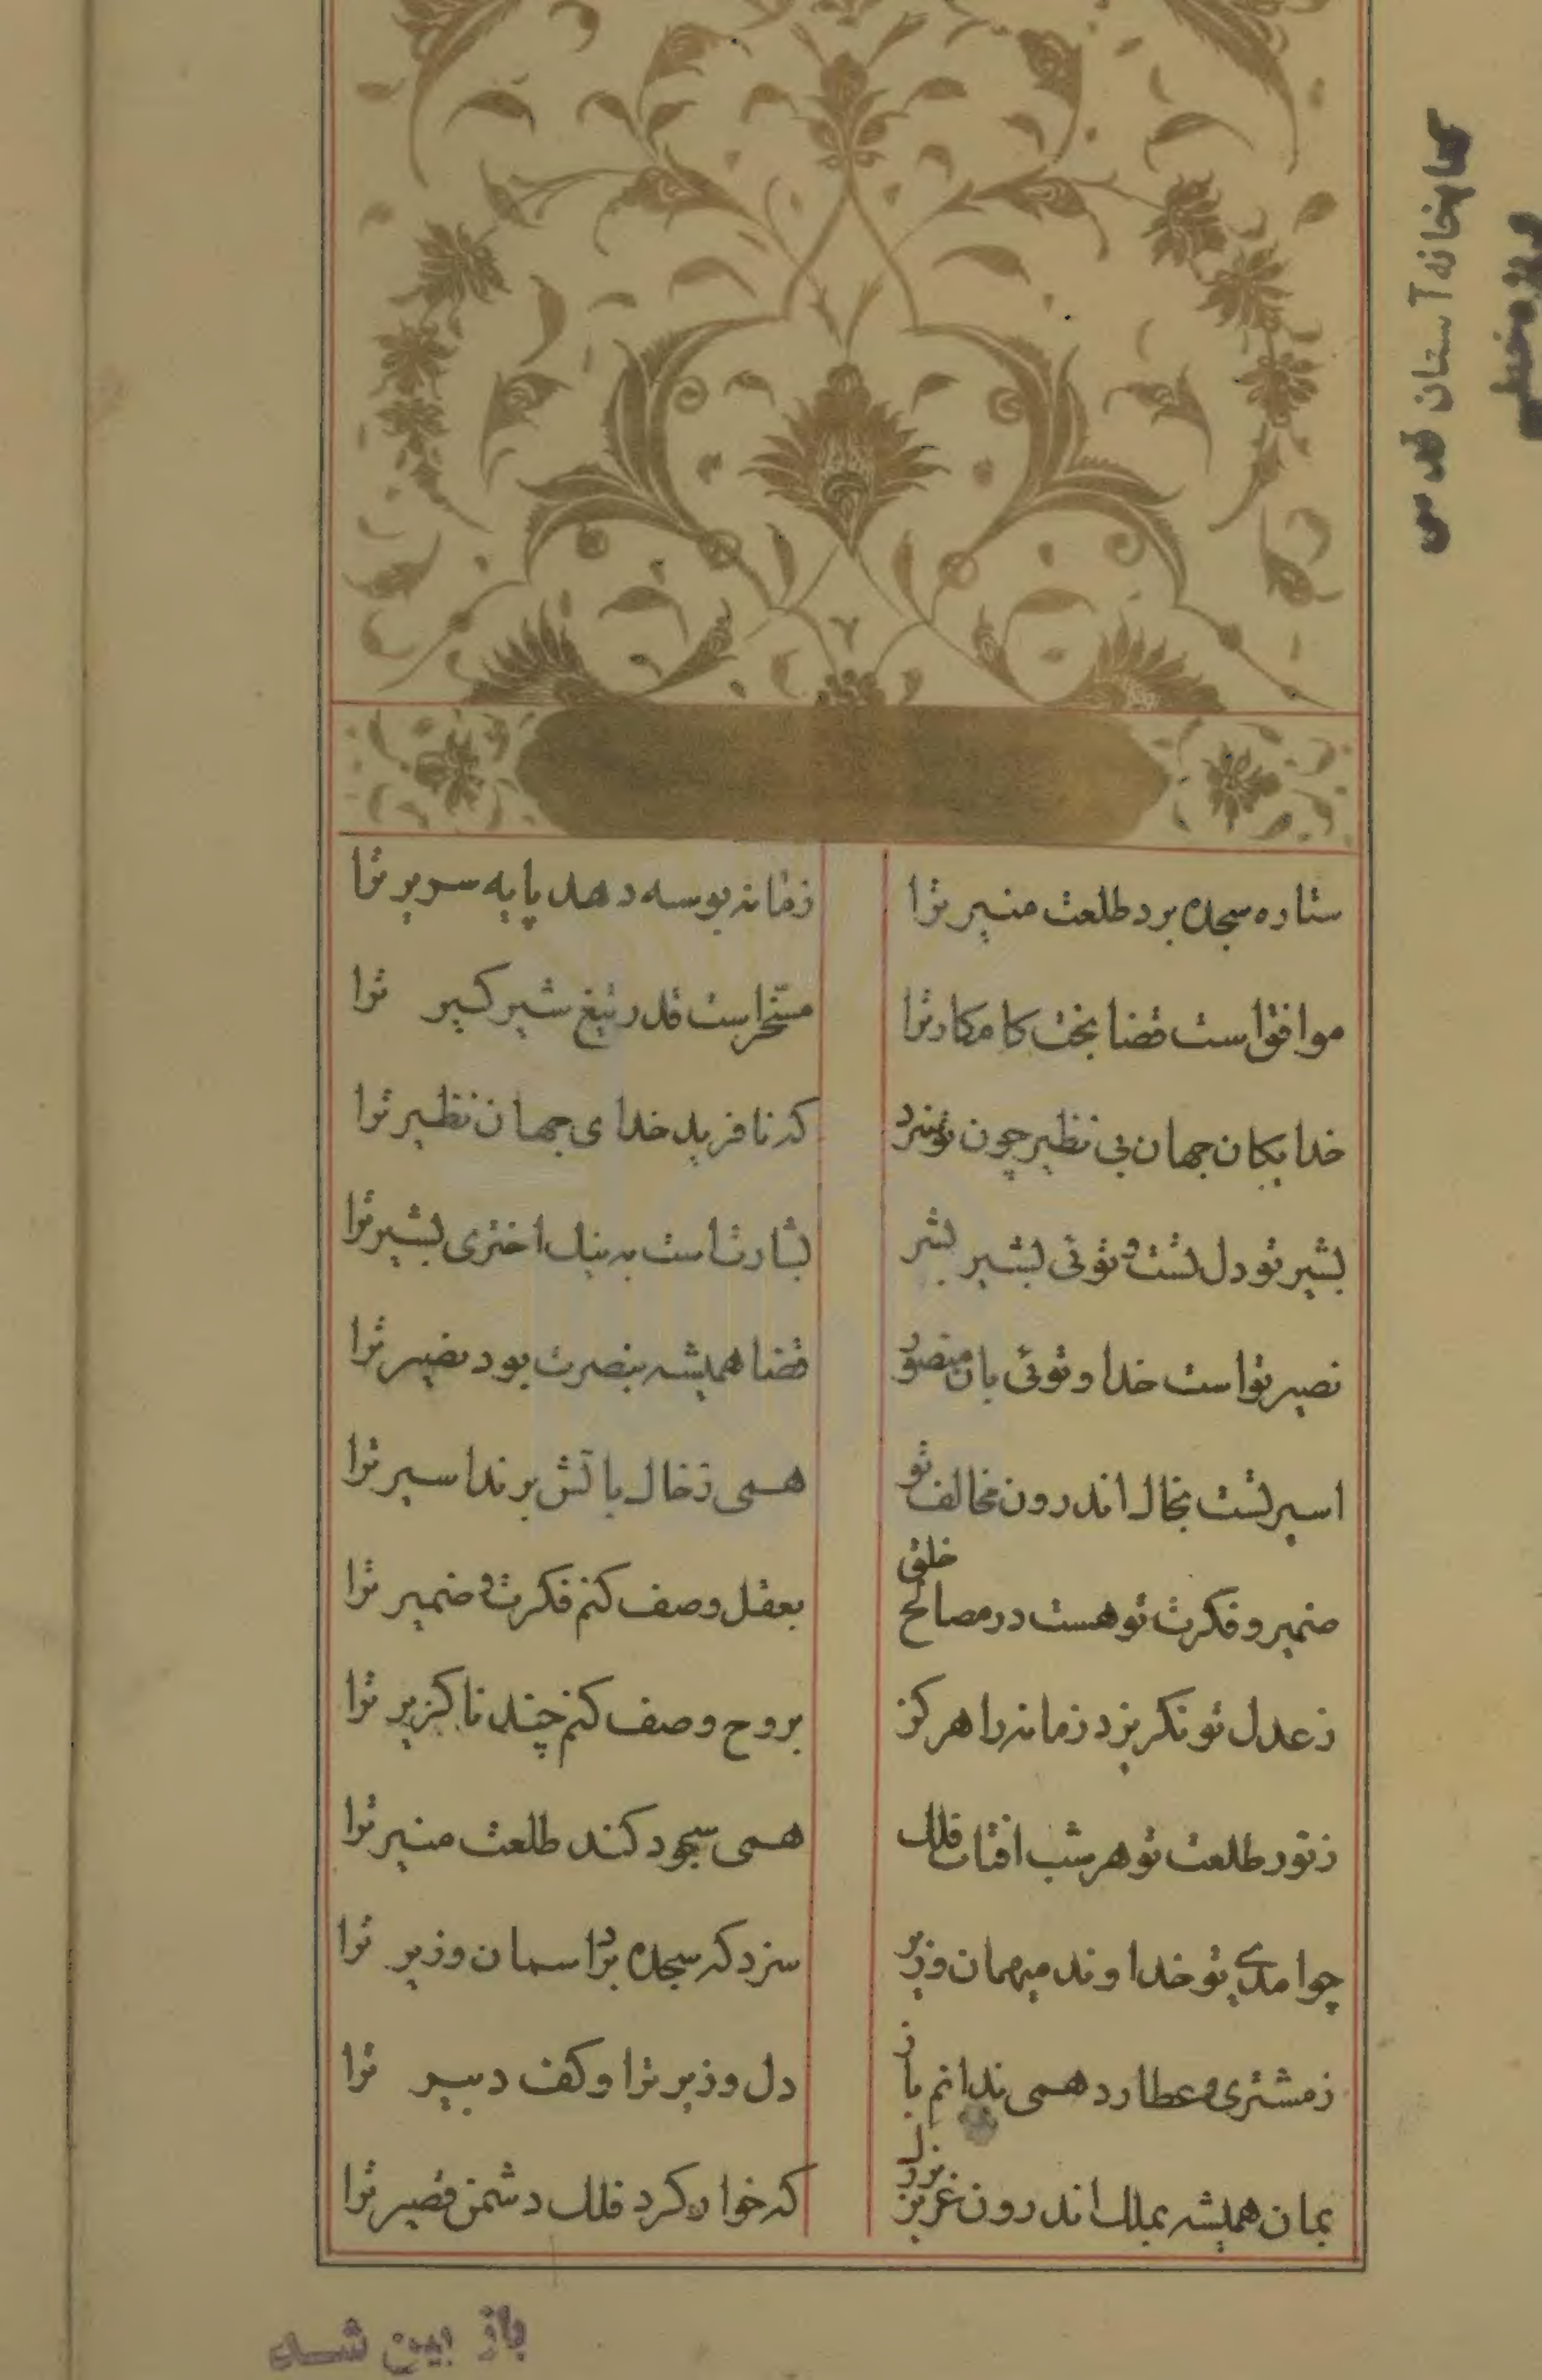 ستاره سجده برد طلعت منیر ترا	زمانه بوسه دهد پایه سریر ترا
موافق است قضا بخت کامکار ترا	مسخر است قدر تیغ شیرگیر ترا
خدایکان جهان بی نظیر چون تو سزد	که نافرید خدای جهان نظیر ترا
بشیر تو دل تست و توئی بشیر بشر	بشارتست به نیک اختری بشیر ترا
نصیر تو است خدا و توئی بان منصور	قضا همیشه بنصرت بود نصیر ترا
اسیر تست بخاک اندرون مخالف تو	همی ز خاک باتش برند اسیر ترا
ضمیر و فکرت تو هست در مصالح خلق	بعقل وصف کنم فکرت و ضمیر ترا
ز عدل تو نکریزد زمانه را هرکز	بروح وصف کنم چند ناکزیر ترا
ز نور طلعت تو هر شب افتاب فلک	همی سجود کند طلعت منیر ترا
چو امدی تو خداوند میهمان وزیر	سزد که سجده برد اسمان وزیر ترا
ز مشتری و عطارد همی ندانم باز	دل وزیر ترا و کف دبیر ترا
بمان همیشه بملک اندرون عزیز	که خوار کرد فلک دشمن قصیر ترا
کتابخانه آستان قدس
باز بین شد